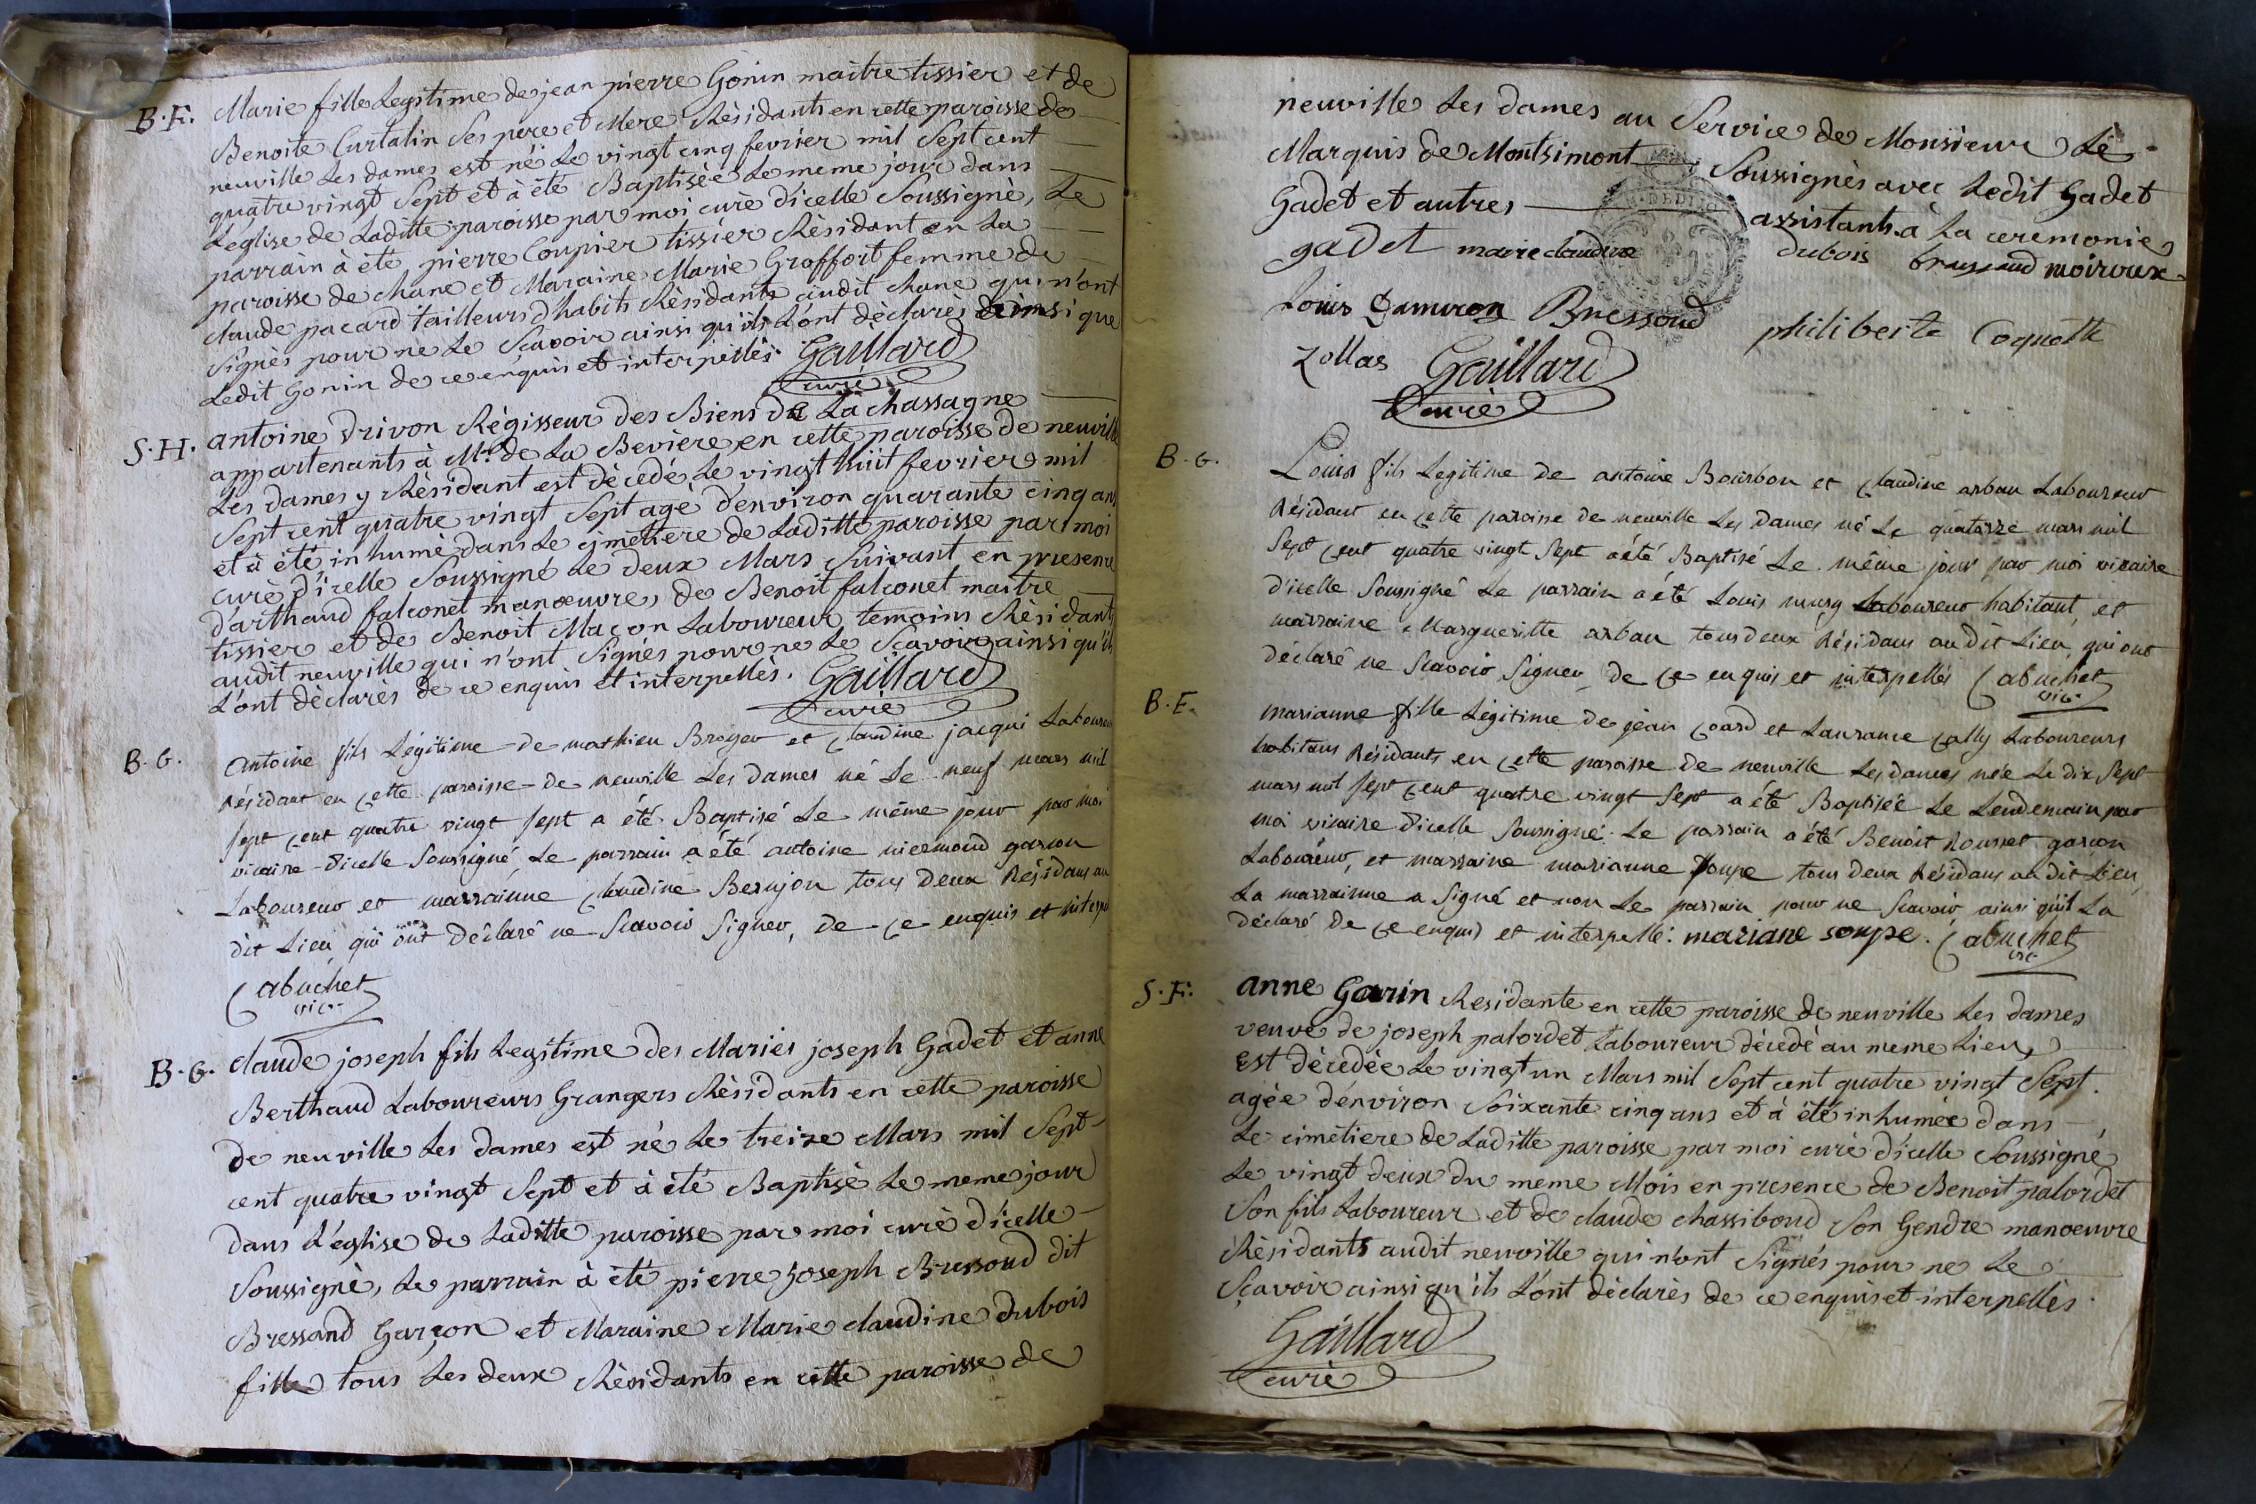 B. F. Marie fille Legitime de jean pierre Gonin maitre tissier et de
Benoite Curtalin Ses pere et Mere Rèsidants en cette paroisse de
neuville Les dames est né Le vingt cinq fevrier mil Sept cent
quatre vingt Sept et à été Baptisèe Le meme jour dans
L'eglise de Laditte paroisse par moi curè d'icelle Soussignè, Le
parrain à èté pierre Coupier tissier Rèsidant en La
paroisse de chane et Maraine Marie Groffort femme de
claude pacard tailleurs d'habits Rèsidants audit chane qui n'ont
Signès pour ne Le Sçavoir ainsi qu'ils L'ont dèclarès ainsi que
Ledit Gonin de ce enquis et interpellès. Gaillard
curè
S. H. antoine Drivon Règisseur des Biens de La chassagne
appartenants à Mr. de La Bevière en cette paroisse de neuville
Les dames y Rèsidant est dècedé Le vingt huit fevrier mil
Sept cent quatre vingt Sept agè d'environ quarante cinq ans
et à été inhumè dans Le cimetiere de Laditte paroisse par moi
curè d'icelle Soussigné Le deux Mars Suivant en presence
d'arthaud falconet manœuvre, de Benoit falconet maitre
tissier et de Benoit Maçon Laboureur temoins Rèsidants
audit neuville qui n'ont Signés pour ne Le Sçavoir ainsi qu'ils
L'ont dèclarès de ce enquis et interpellès. Gaillard
curè
B. G. Antoine fils Légitime de mathieu Broyer et Claudine jacqui Laboureur
Résidant en Cette paroisse de neuville Les dames né Le neuf mars mil
sept Cent quatre vingt sept a été Baptisé Le même jour par moi
vicaire d'icelle Soussigné, Le parrain a été antoine niermond garson
Laboureur et marrainne Claudine Berujon tous Deux Résidans au
dit Lieu qui ont Déclaré ne Scavoir Signer, De Ce enquis et interpe
Cabuchet
vic.
B. G. claude joseph fils Legitime des Mariès joseph Gadet et anne
Berthaud Laboureurs Grangers Rèsidants en cette paroisse
de neuville Les dames est né Le treize Mars mil Sept
cent quatre vingt Sept et à été Baptisè Le meme jour
dans L'église de Laditte paroisse par moi curè d'icelle
Soussignè, Le parrain à été pierre joseph Bressoud dit
Bressand Garçon et Maraine Marie claudine dubois
fille tous Les deux Rèsidants en cette paroisse de
neuville Les dames au Service de Monsieur Le
Marquis de Montsimont Soussignès avec Ledit Gadet
Gadet et autres assistants à La ceremonie
gadet marie claudine dubois moiroux
Louis Damiron Bressoud philiberte Coquette
Zollas Gaillard
curè
B. G. Louis fils Legitime de antoine Bourbon et Claudine arbau Laboureur
Résidant en Cette paroisse de neuville Les Dames né Le quatorze mars mil
Sept Cent quatre vingt Sept a été Baptisé Le même jour par moi vicaire
d'icelle Soussigné Le parrain a été Louis Laboureur habitant, et
marraine Margueritte arbau tous deux Résidans au dit Lieu, qui ont
déclaré ne Scavoir Signer, de Ce enquis et interpellés Cabuchet
vic.
B. F. marianne fille Légitime de jean Coard et Laurance Cally Laboureurs
habitans Résidants en Cette paroisse de neuville Les dames née Le dix Sept
mars mil sept Cent quatre vingt Sept a été Baptisée Le Lendemain par
moi vicaire d'icelle Soussigné. Le parrain a été Benoit Rousset garçon
Laboureur, et marraine marianne Soupe tous deux Résidans au dit Lieu,
La marrainne a Signé et non Le parrain pour ne Scavoir ainsi qu'il La
déclaré De Ce enquis et interpellé: mariane soupe. Cabuchet
vic.
S. F. anne Gavin Residante en cette paroisse de neuville Les dames
veuve de joseph palordet Laboureur dècedè au meme Lieu,
est dècedèe Le vingt un Mars mil Sept cent quatre vingt Sept.
agèe d'environ Soixante cinq ans et à été inhumèe dans
Le cimetiere de Laditte paroisse par moi curè d'icelle Soussigné
Le vingt deux du meme Mois en presence de Benoit palordet
Son fils Laboureur et de claude chassiboud Son Gendre manoeuvre
Rèsidants audit neuville qui n'ont Signés pour ne Le
Sçavoir ainsi qu'ils L'ont dèclarès de ce enquis et interpellès.
Gaillard
curè